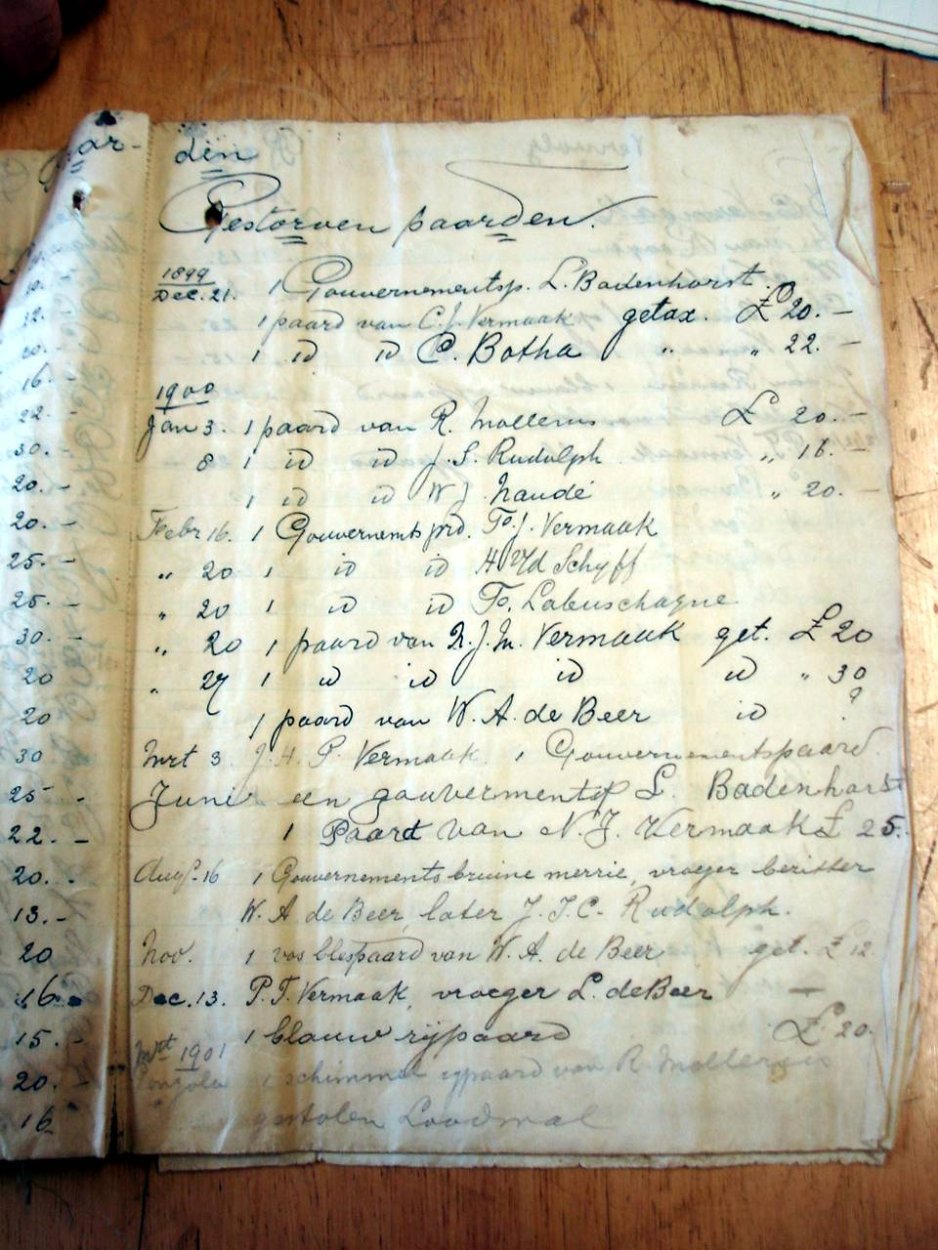 Gestorven paarden.
1899
Dec. 21. 1 Gouvernementsp. L. Badenhorst.
1 paard van C. J. Vermaak getax. £ 20. —
1 id id C. Botha " " 22. —
1900
Jan 3. 1 paard van R. Mollerus £ 20. —
8 1 id id J. S. Rudolph " 16. —
1 id id W. J. Naudé " 20. —
Febr 16. 1 Gouvernemts prd. J. Vermaak
" 20 1 id id H. Vd Schyff
" 20 1 id id Labuschagne
" 20 1 paard van N. J. M. Vermaak get. £ 20
" 27 1 id id id id " 30
1 paard van W. A. de Beer id ?
Mrt 3 J. H. P. Vermaak 1 Gouvernementspaard
Junie een gouvermentsp L. Badenhorst
1 Paard van N. J. Vermaak £ 25.
Aug. 16 1 Gouvernements bruine merrie, vroeger beritter
W. A de Beer, later J. J. C. Rudolph.
Nov. 1 vos blespaard van W. A. de Beer get. £ 12
Dec. 13. P. J. Vermaak, vroeger L. de Beer —
1 blauw rijpaard £ 20.
Mrt 1901
Pongola 1 schimmel rypaard van R. Mollerus
gestolen Loodwal
22. -
30. -
20. -
20. -
25. -
25. -
30. -
20
20
30
25 -
22. -
20. -
13. -
20
16.
15. -
20. -
16